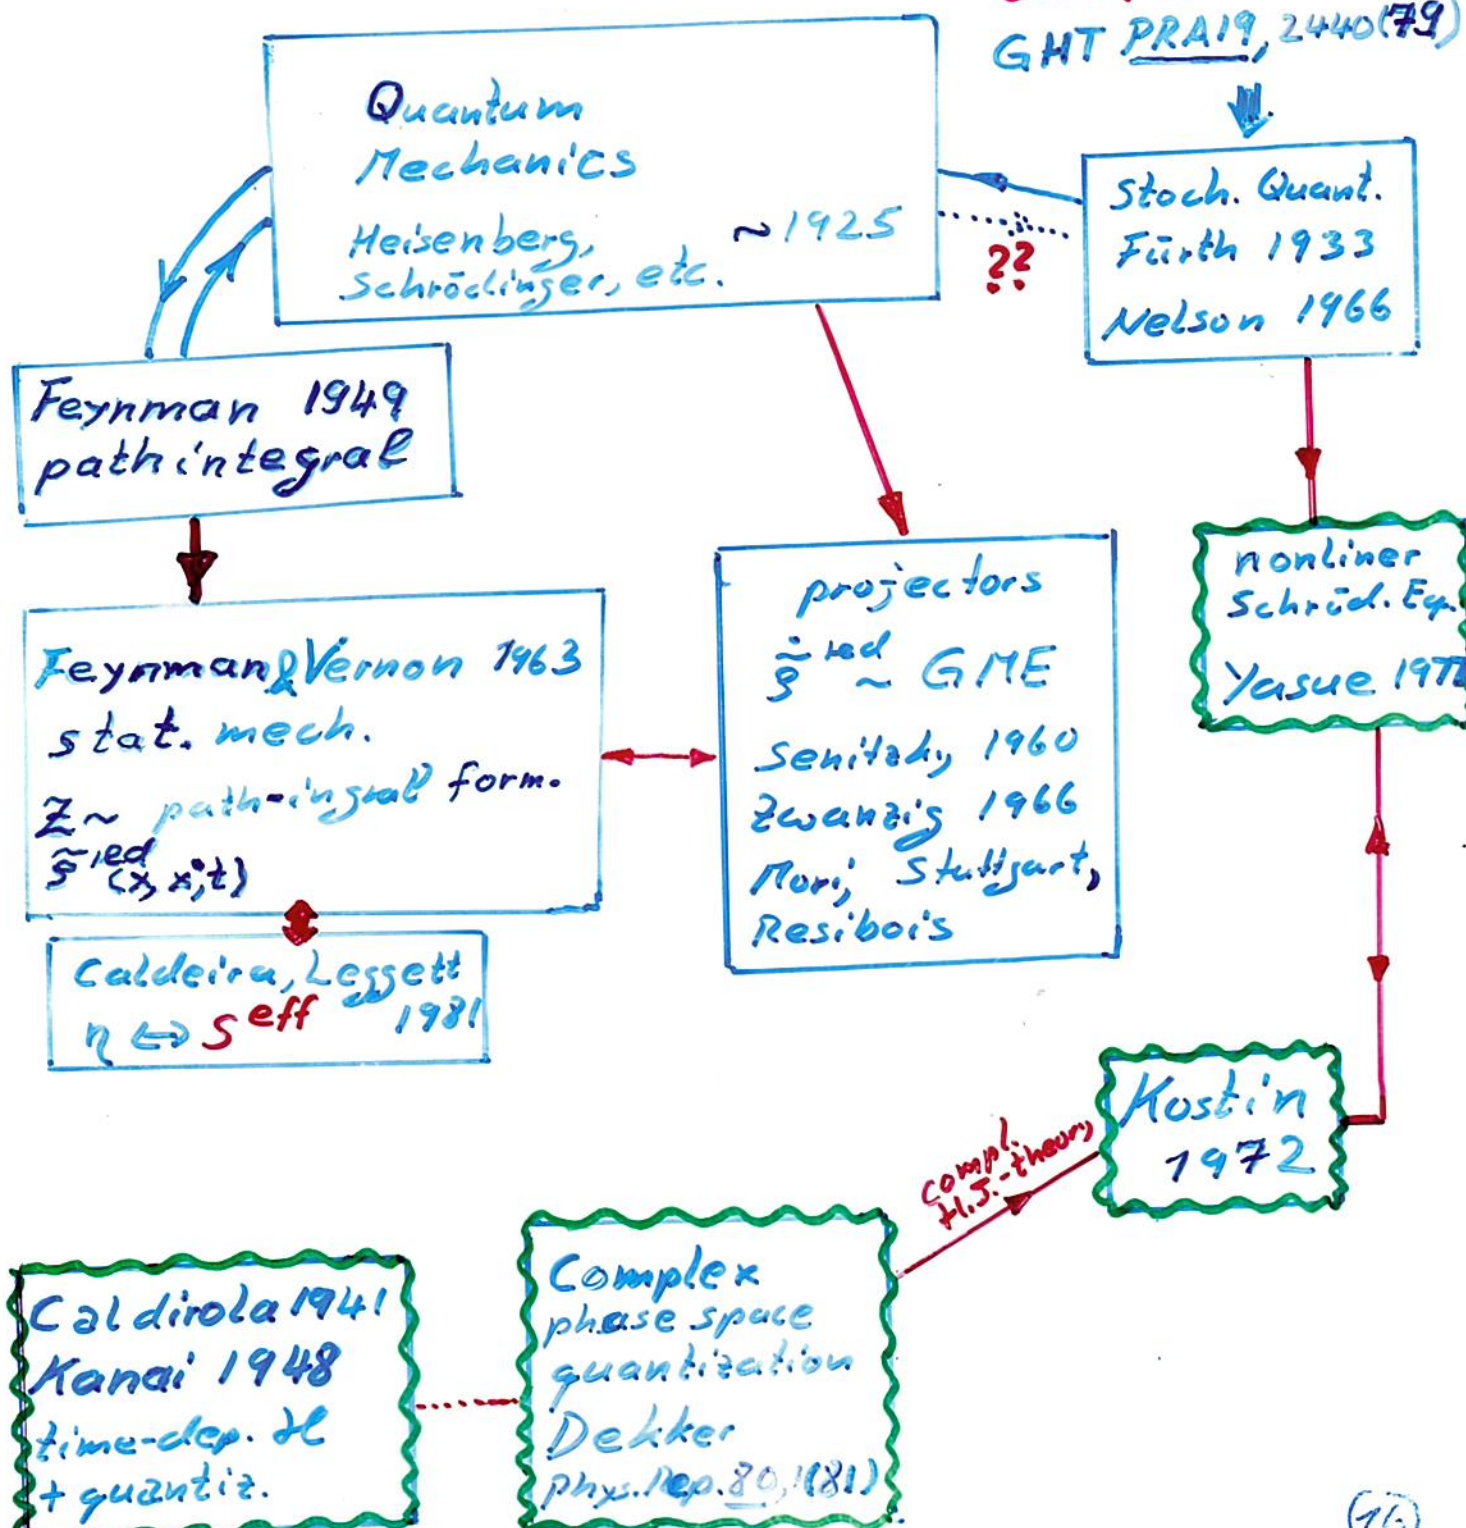 GHT PRA19, 2440(79)
Quantum
Mechanics
Heisenberg, ~1925
Schrödinger, etc.
??
Stoch. Quant.
Fürth 1933
Nelson 1966
Feynman 1949
path integral
Feynman & Vernon 1963
stat. mech.
Z ~ path-ingral form.
ρ̃ red (x, x', t)
Caldeira, Leggett
1981
η ⇔ S eff
projectors
ρ̃̇ red ~ GME
Senitzky 1960
Zwanzig 1966
Mori, Stuttgart,
Resibois
nonliner
Schröd. Eq.
Yasue
Kostin
1972
compl.
H.J.-theory
Caldirola 1941
Kanai 1948
time-dep. H
+ quantiz.
Complex
phase space
quantization
Dekker
Phys. Rep. 80, 1(81)